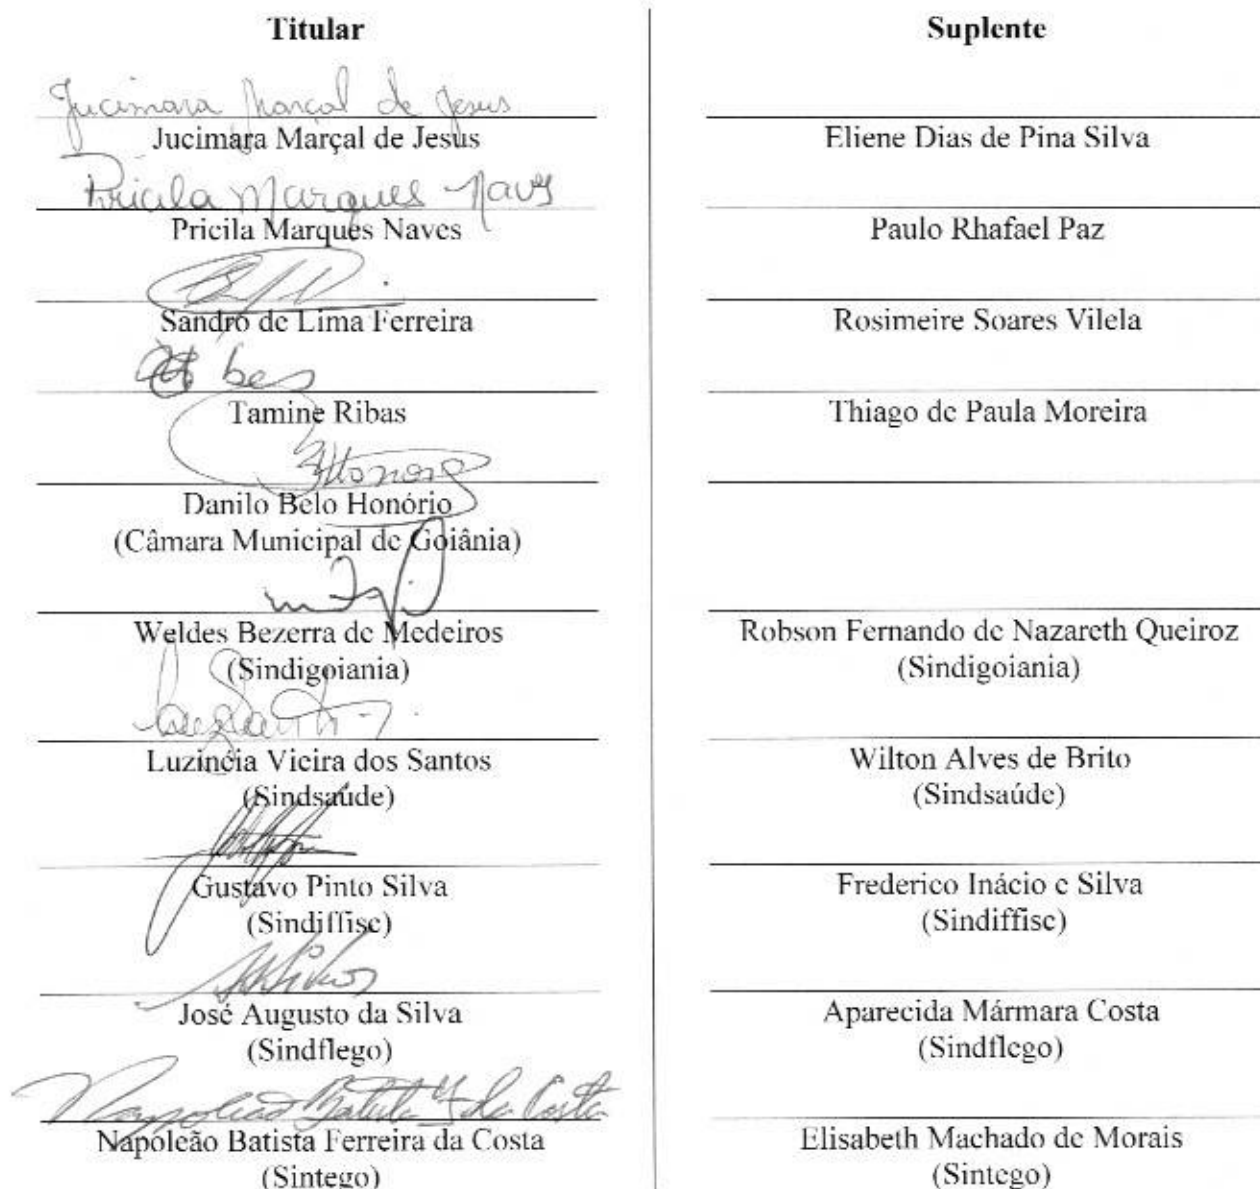 Titular
Jucimara Marçal de Jesus
Jucimara Marçal de Jesus
Pricila Marques Naves
Pricila Marques Naves
Sandro de Lima Ferreira
Tamine Ribas
Danilo Belo Honório
(Câmara Municipal de Goiânia)
Weldes Bezerra de Medeiros
(Sindigoiania)
Luzinéia Vieira dos Santos
(Sindsaúde)
Gustavo Pinto Silva
(Sindiffisc)
José Augusto da Silva
(Sindflego)
Napoleão Batista F da Costa
Napoleão Batista Ferreira da Costa
(Sintego)
Suplente
Eliene Dias de Pina Silva
Paulo Rhafael Paz
Rosimeire Soares Vilela
Thiago de Paula Moreira
Robson Fernando de Nazareth Queiroz
(Sindigoiania)
Wilton Alves de Brito
(Sindsaúde)
Frederico Inácio e Silva
(Sindiffisc)
Aparecida Mármara Costa
(Sindflego)
Elisabeth Machado de Morais
(Sintego)